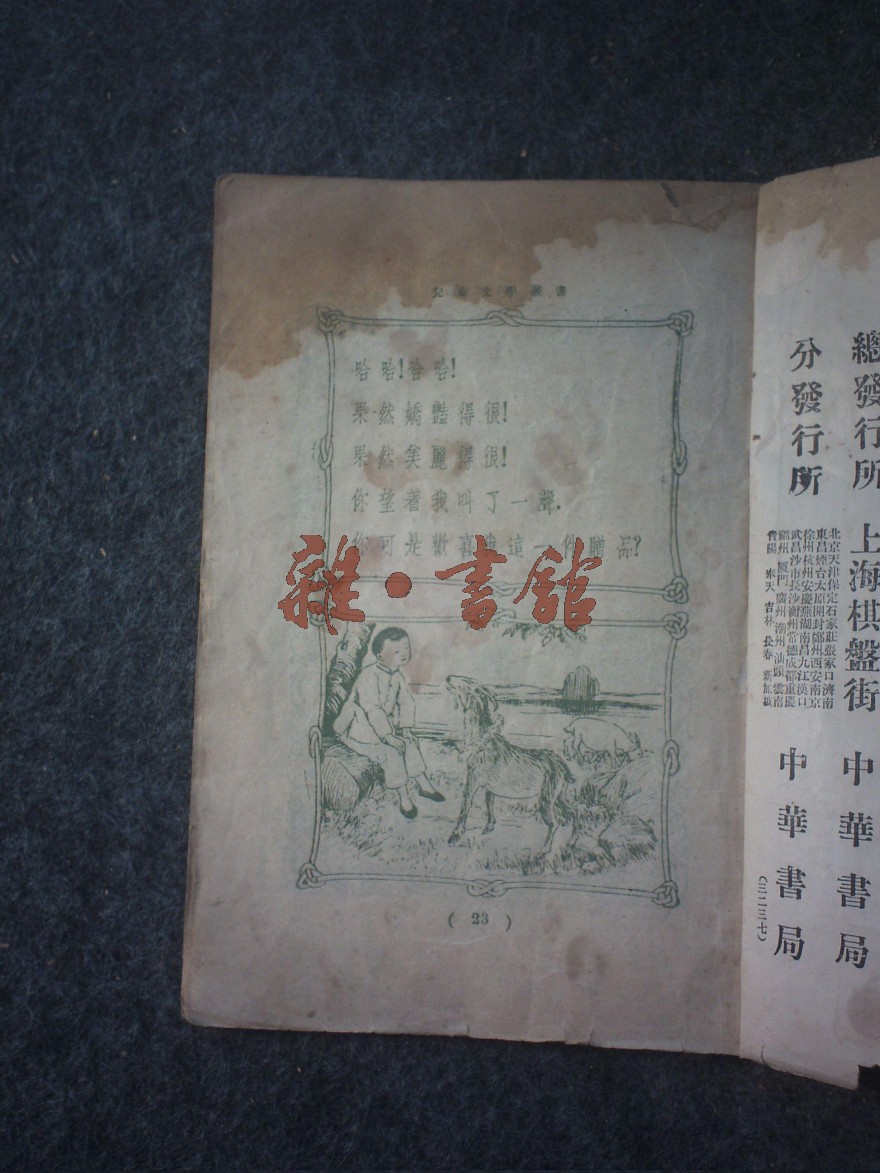 兒童文學叢書
哈哈!哈哈!
果然嬌豔得很!
果然美麗得很!
你望着我叫了一聲.
你可是歡喜我這一件贈品?
雜·書館
(23)
總發行所 上海棋盤街 中華書局
分發行所
北京天津保定石家莊張家口濟南
東昌煙台太原開封鄭州西安南京
徐州杭州安慶蕪湖南昌九江漢口
武昌沙市長沙衡州常德成都重慶
福州廈門廣州潮州汕頭雲南
貴陽奉天吉林長春新加坡
中華書局
(三二三七)